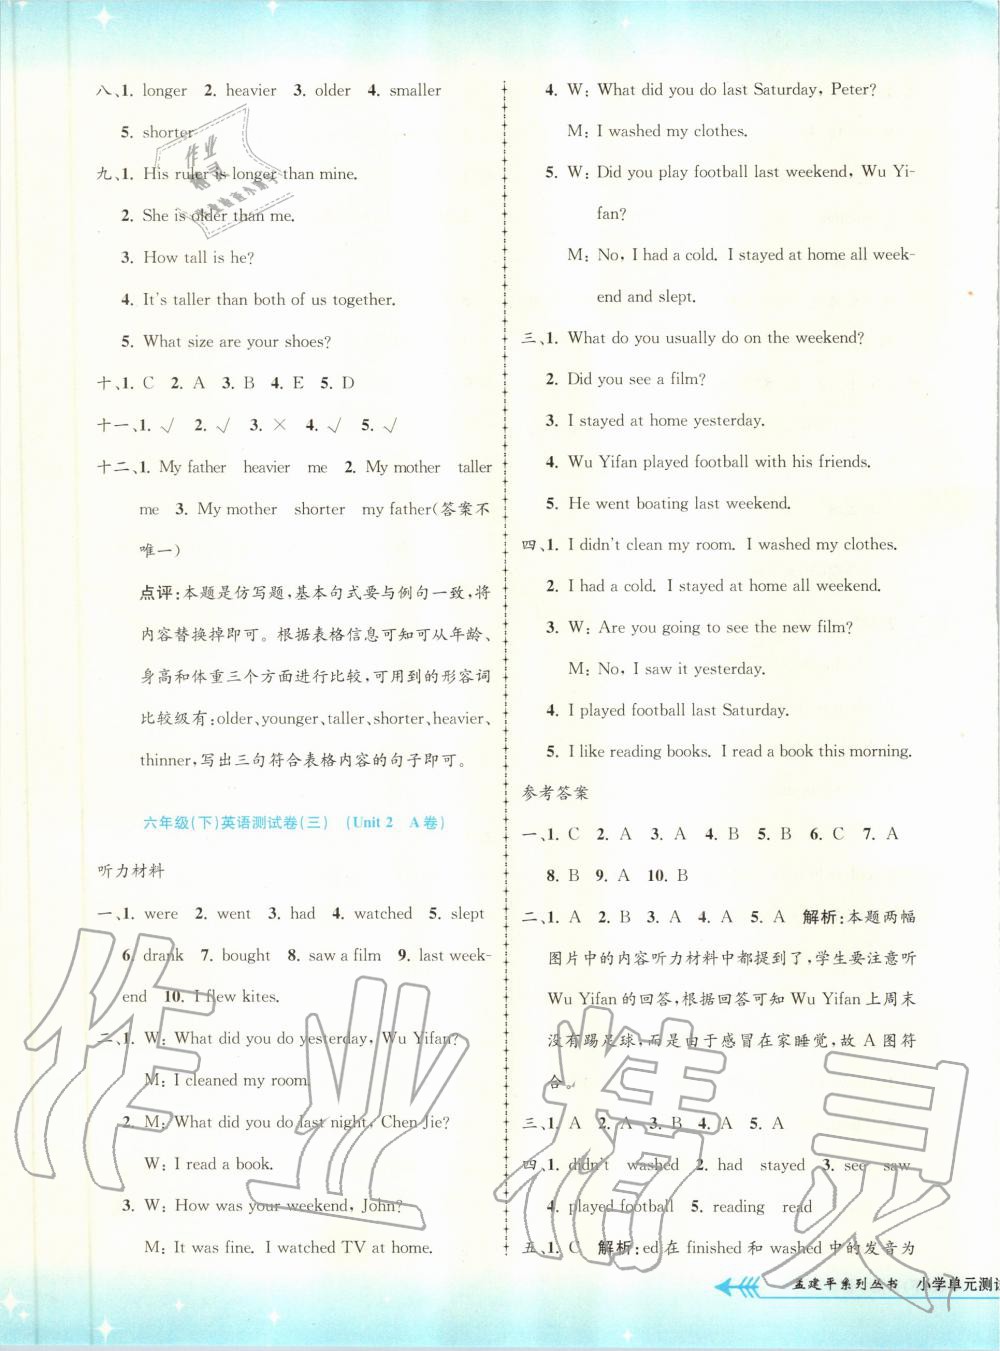 八、1. longer 2. heavier 3. older 4. smaller
5. shorter
九、1. His ruler is longer than mine.
2. She is older than me.
3. How tall is he?
4. It's taller than both of us together.
5. What size are your shoes?
十、1. C 2. A 3. B 4. E 5. D
十一、1. √ 2. √ 3. × 4. √ 5. √
十二、1. My father heavier me 2. My mother taller
me 3. My mother shorter my father(答案不
唯一)
点评:本题是仿写题,基本句式要与例句一致,将
内容替换掉即可。根据表格信息可知可从年龄、
身高和体重三个方面进行比较,可用到的形容词
比较级有:older、younger、taller、shorter、heavier、
thinner,写出三句符合表格内容的句子即可。
六年级(下)英语测试卷(三) (Unit 2 A卷)
听力材料
一、1. were 2. went 3. had 4. watched 5. slept
6. drank 7. bought 8. saw a film 9. last week-
end 10. I flew kites.
二、1. W: What did you do yesterday, Wu Yifan?
M: I cleaned my room.
2. M: What did you do last night, Chen Jie?
W: I read a book.
3. W: How was your weekend, John?
M: It was fine. I watched TV at home.
4. W: What did you do last Saturday, Peter?
M: I washed my clothes.
5. W: Did you play football last weekend, Wu Yi-
fan?
M: No, I had a cold. I stayed at home all week-
end and slept.
三、1. What do you usually do on the weekend?
2. Did you see a film?
3. I stayed at home yesterday.
4. Wu Yifan played football with his friends.
5. He went boating last weekend.
四、1. I didn't clean my room. I washed my clothes.
2. I had a cold. I stayed at home all weekend.
3. W: Are you going to see the new film?
M: No, I saw it yesterday.
4. I played football last Saturday.
5. I like reading books. I read a book this morning.
参考答案
一、1. C 2. A 3. A 4. B 5. B 6. C 7. A
8. B 9. A 10. B
二、1. A 2. B 3. A 4. A 5. A 解析:本题两幅
图片中的内容听力材料中都提到了,学生要注意听
Wu Yifan的回答,根据回答可知Wu Yifan上周末
没有踢足球,而是由于感冒在家睡觉,故A图符
合。
三、1. A 2. A 3. B 4. A 5. A
四、1. didn't washed 2. had stayed 3. see saw
4. played football 5. reading read
五、1. C 解析:ed在finished和washed中的发音为
孟建平系列丛书 小学单元测试
作业精灵